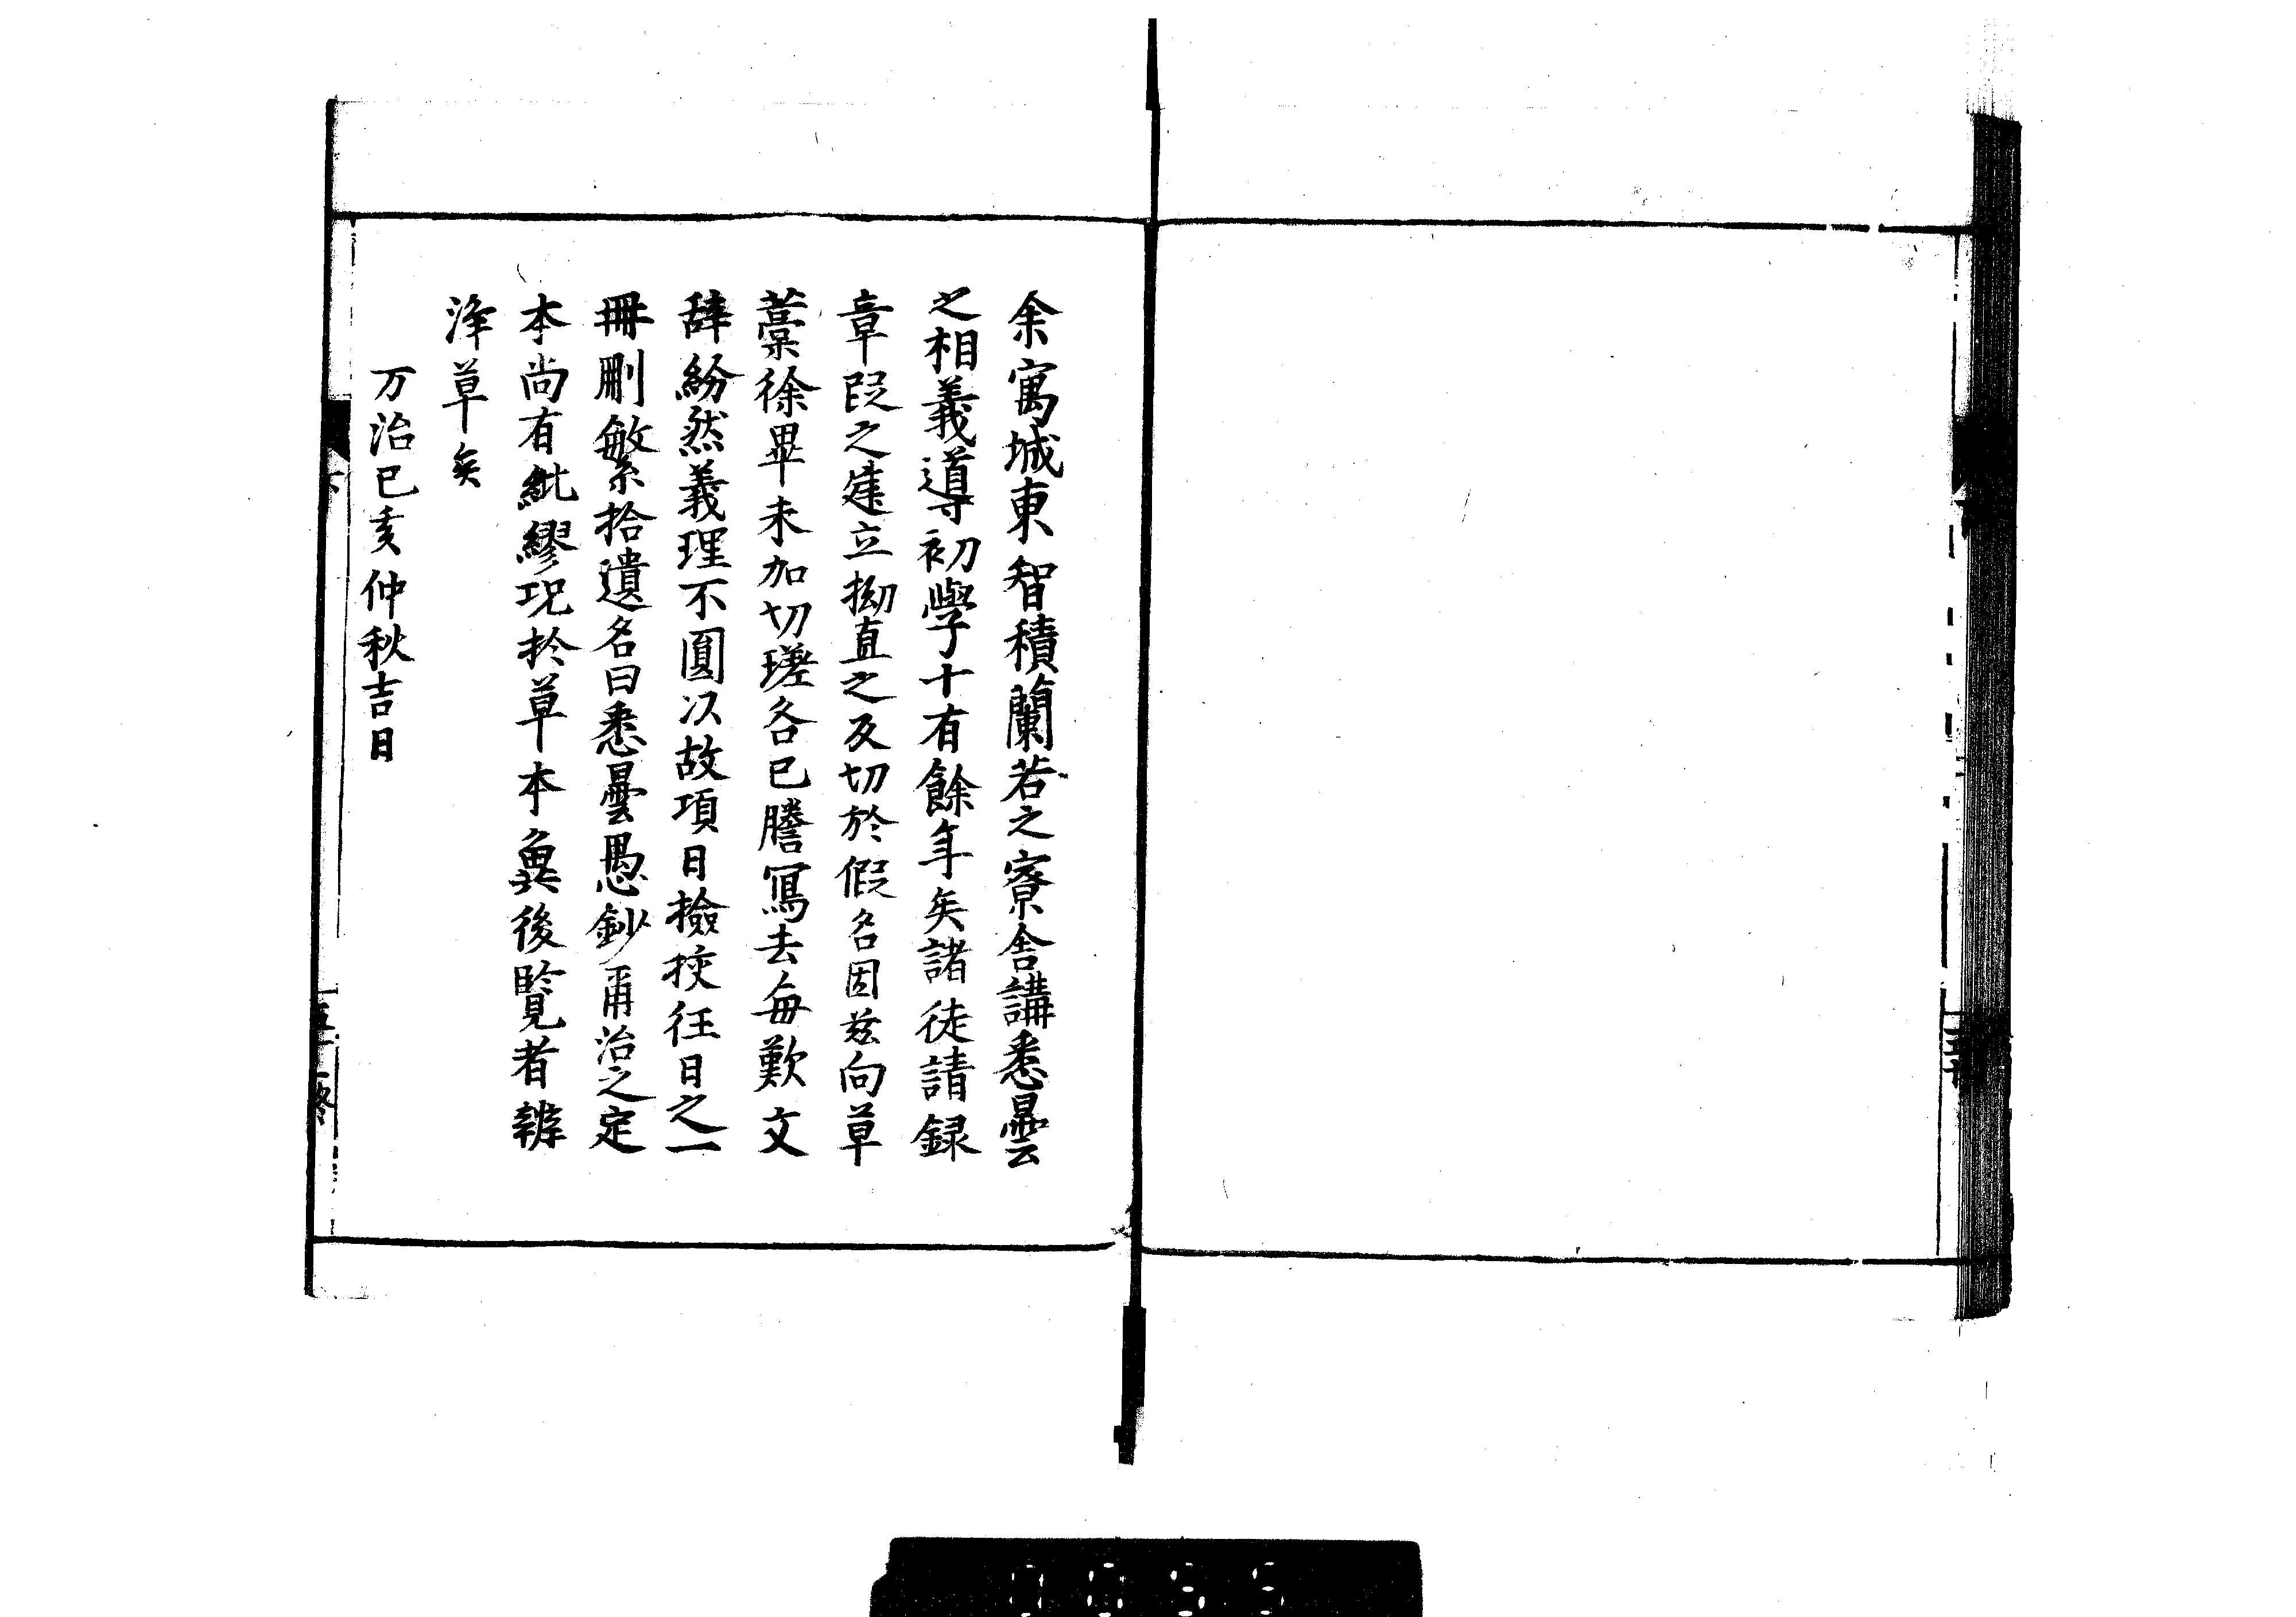 余寓城東智積蘭若之寮舍講悉曇
之相義導初學十有餘年矣諸徒請録
章段之建立拗直之反切於假名因茲向草
藁徐畢未加切瑳各已謄寫去每歎文
辞紛然義理不圓以故項日撿挍往日之一
冊刪繁拾遺名曰悉曇愚鈔甭治之定
本尚有紕繆况於草本冀後覧者辨
淨草矣
万治己亥仲秋吉日